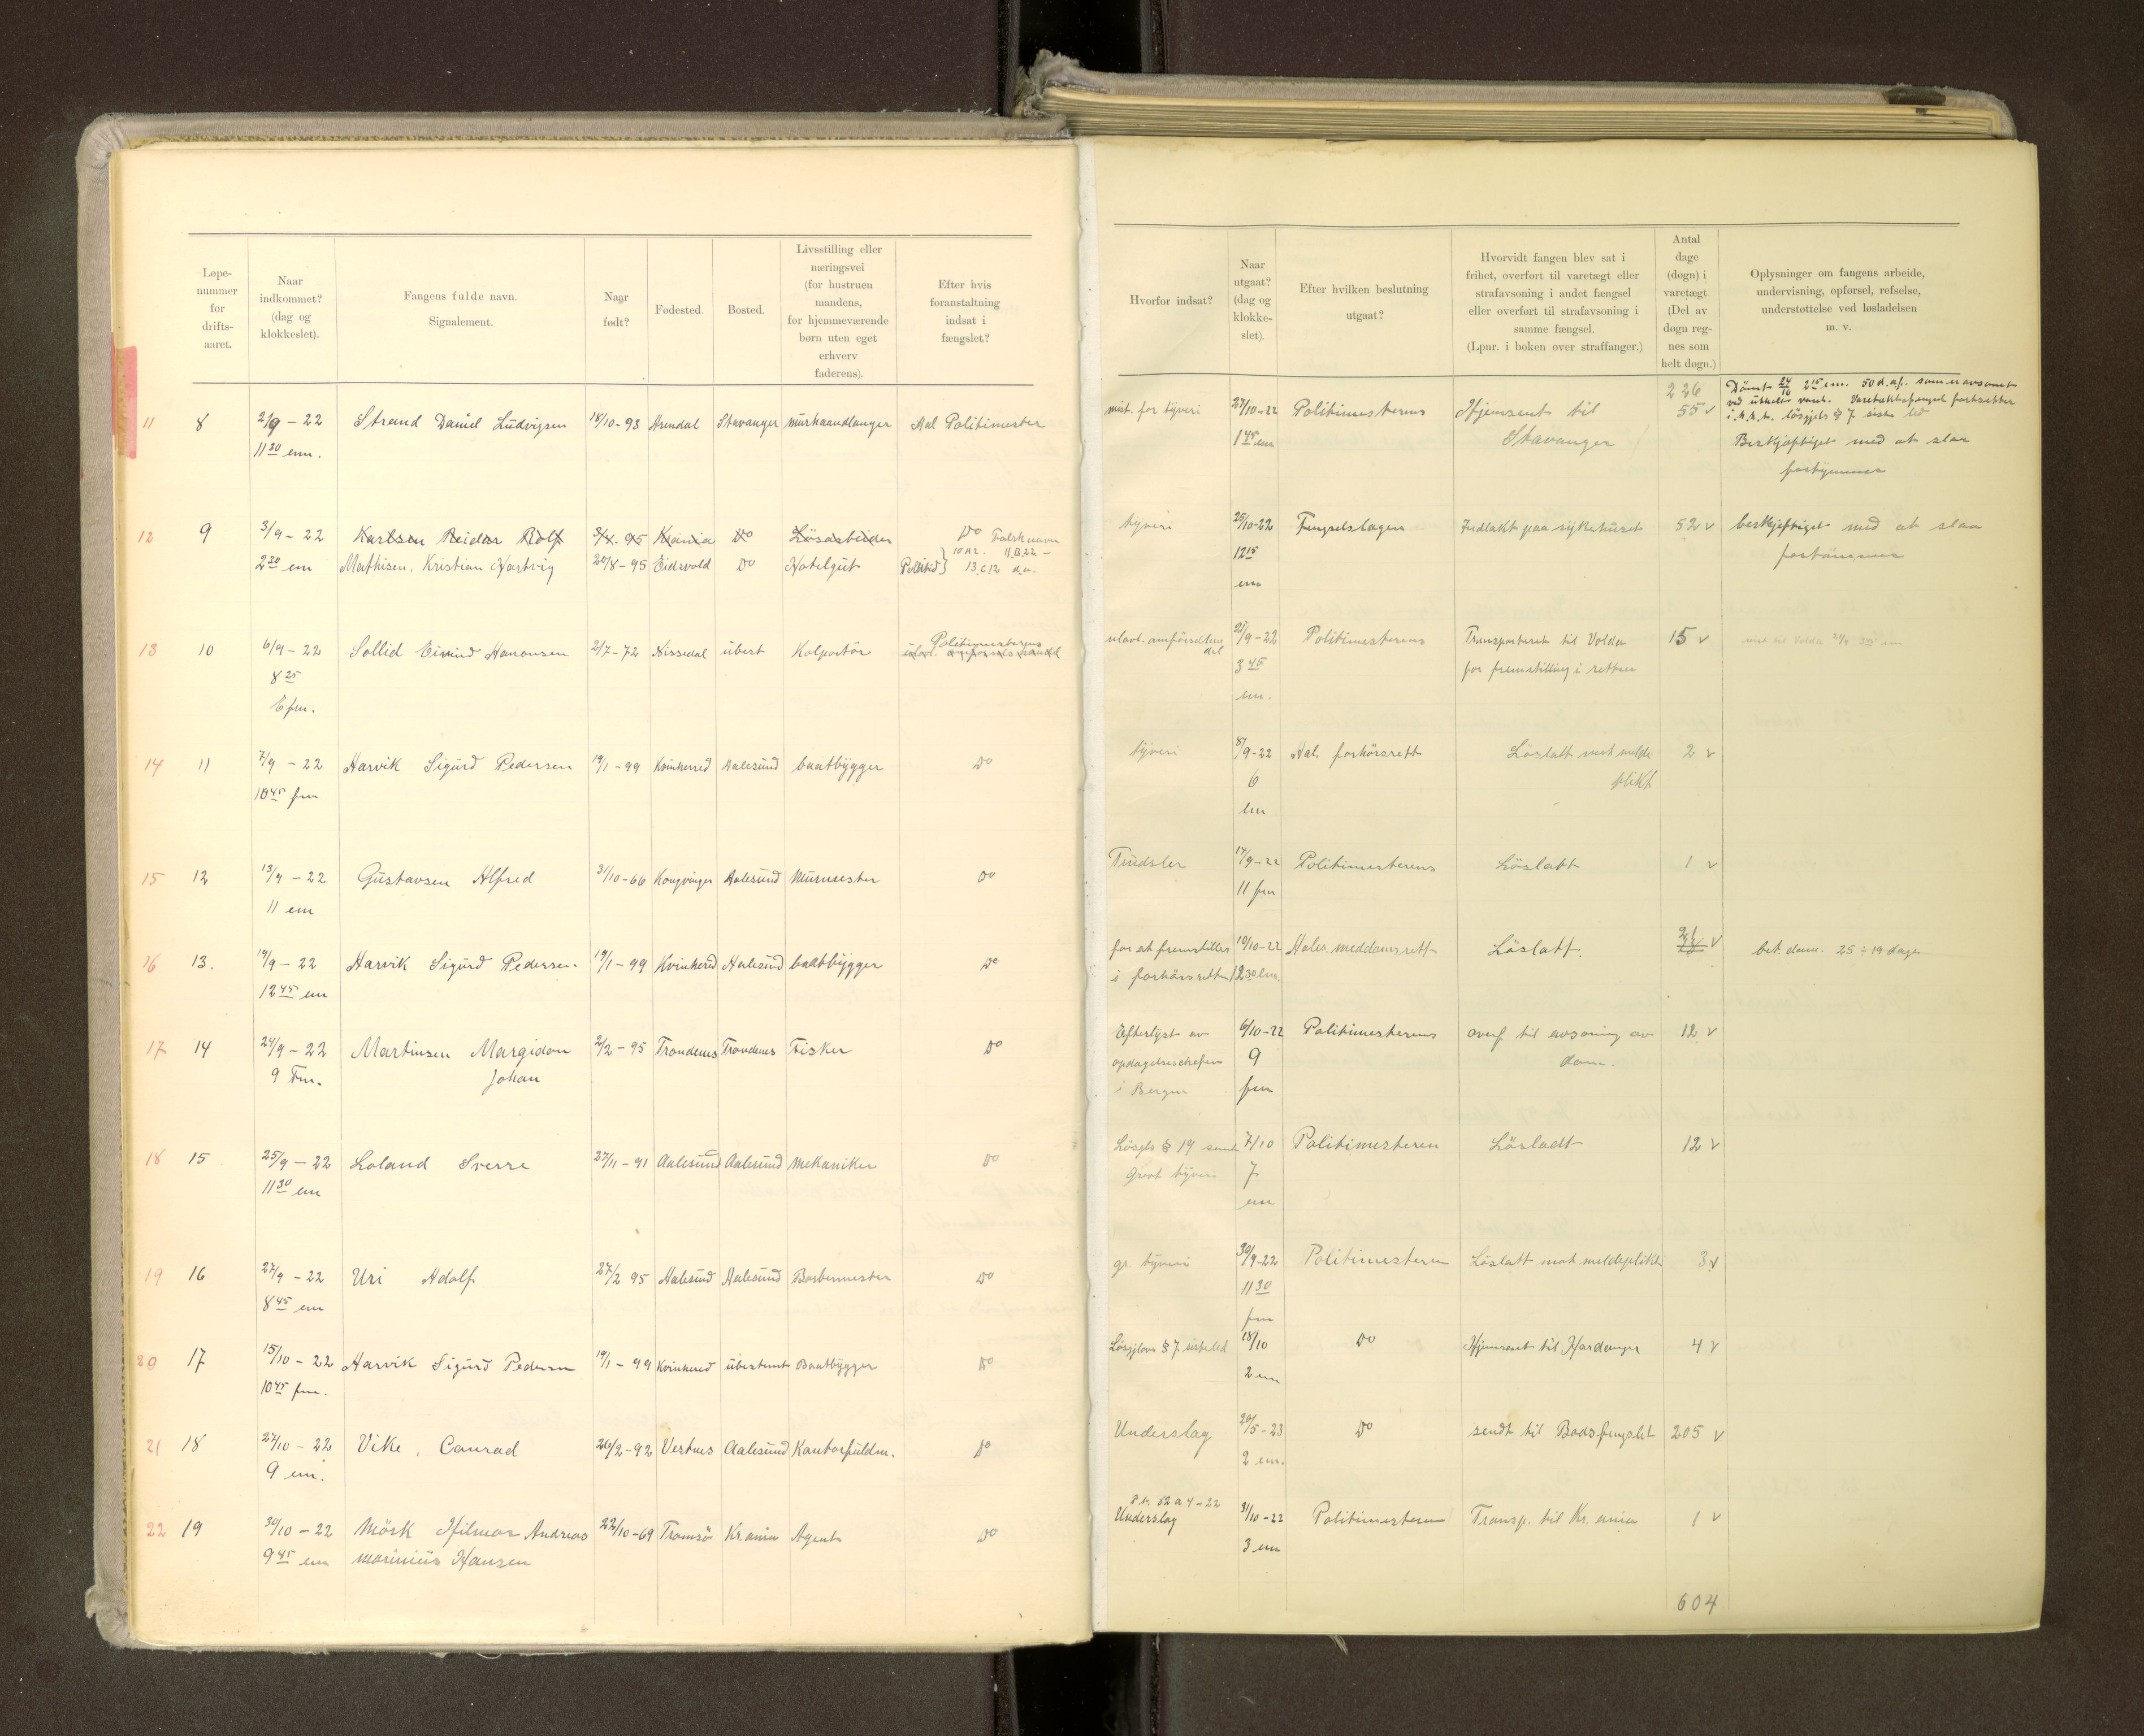 Løpe-
nummer
for
drifts-
aaret.
Naar
indkommet?
(dag og
klokkeslet).
Fangens fulde navn.
Signalement.
Naar
født?
Fødested.
Bosted.
Livsstilling eller
næringsvei
(for hustruen
mandens,
for hjemmeværende
børn uten eget
erhverv
faderens).
Efter hvis
foranstaltning
indsat i
fængslet?
Hvorfor indsat?
Naar
utgaat?
(dag og
klokke-
slet).
Efter hvilken beslutning
utgaat?
Hvorvidt fangen blev sat i
frihet, overført til varetægt eller
strafavsoning i andet fængsel
eller overført til strafavsoning i
samme fængsel.
(Lpnr. i boken over straffanger.)
Antal
dage
(døgn) i
varetægt.
(Del av
døgn reg-
nes som
helt døgn.)
Oplysninger om fangens arbeide,
undervisning, opførsel, refselse,
understøttelse ved løsladelsen
m. v.
11 8 2/9 – 22 Strand Daniel Ludvigsen 18/10-93 Arendal Stavanger murhaandlanger Aal Politimester
11 30 em.
mist. for tyveri 27/10-22 Politimesterens Hjemsent til 226 55 v
1 45 em Stavanger
Dömt 24/10 2 15 em. 50 d. af. som er avsonet
i. h. t. lösgjels § 7 siste led
Beskjæftiget med at slaa
fortömmer
12 9 3/9 – 22 Karlsen Reidar Rolf 3/X-95 Kr.ania Do Lösarbeider Do Falsk navn
2 20 em Mathisen, Kristian Hartvig 20/8-95 Eidsvold Do Hotelgut
13 C 12 d.a.
tyveri 25/10-22 Fengselslægen Indlakt paa sykehuset 52 v beskjeftiget med at slaa
12 15 fortömmer
em
13 10 6/9 – 22 Sollid Eivind Hanonsen 2/7-72 Nissedal übest Kolportör Politimesterens
8 25 ulovl. omförsels handel
fm.
ulovl. omförselhan 21/9-22 Politimesterens Transporteret til Volda 15 v
del
3 45 for fremstilling i retten
em.
14 11 7/9 – 22 Harvik Sigurd Pedersen 19/1-99 Kvinherred Aalesund baatbygger Do
10 45 fm
tyveri 8/9-22 Aal. forhörsrett Löslatt mot melde 2 v
6 plikt
em
15 12 13/9 – 22 Gustavsen Alfred 31/10-66 Kongvinger Aalesund Murmester Do
11 em
Trudsler 14/9-22 Politimesterens Löslatt 1 v
11 fm
16 13. 19/9 – 22 Harvik Sigurd Pedersen. 19/1-99 Kvinhered Aalesund baatbygger Do
12 45 em
for at fremstilles 10/10-22 Aales. meddomsrett Löslatt. 21 v bet. dom. 25 ÷ 19 dage
i forhörsretten 12 30 em.
17 14 24/9 – 22 Martinsen Margidon 2/2-95 Trondenes Trondenes Fisker Do
9 Fm. Johan
Efterlyst av 6/10-22 Politimesterens overf til avsoning av 12 v
opdagelseschefen 9 dom.
i Bergen fm
18 15 25/9 – 22 Loland Sverre 27/11-91 Aalesund Aalesund Mekaniker Do
11 30 em
Lösgls § 19 samt 7/10 Politimesteren Lösladt 12 v
Grovt tyveri 7
em
19 16 27/9 – 22 Uri Adolf 27/2 95 Aalesund Aalesund Barbermester Do
8 45 em
gr. tyveri 30/9-22 Politimesteren Löslatt mot meldeplikt 3 v
11 30
fm
20 17 15/10 – 22 Harvik Sigurd Pedersen 19/1-99 Kvinhered übestemt Baatbygger Do
10 45 fm.
Lösgjlovn § 7 sisteled 18/10 Do Hjemsent til Hardanger 4 v
2 em
21 18 27/10 – 22 Vike, Conrad 26/2-92 Vestnes Aalesund Kontorfuldm. Do
9 em.
Underslag 20/5-23 Do sendt til Bodsfengslet 205 v
2 em.
22 19 30/10 – 22 Mörk Hilmar Andreas 22/10-69 Tromsö Kr.ania Agent Do
9 45 em marinius Hansen
P.e. 52 a 4-22
Underslag 31/10-22 Politimesteren Transp. til Kr. ania 1 v
3 em
604